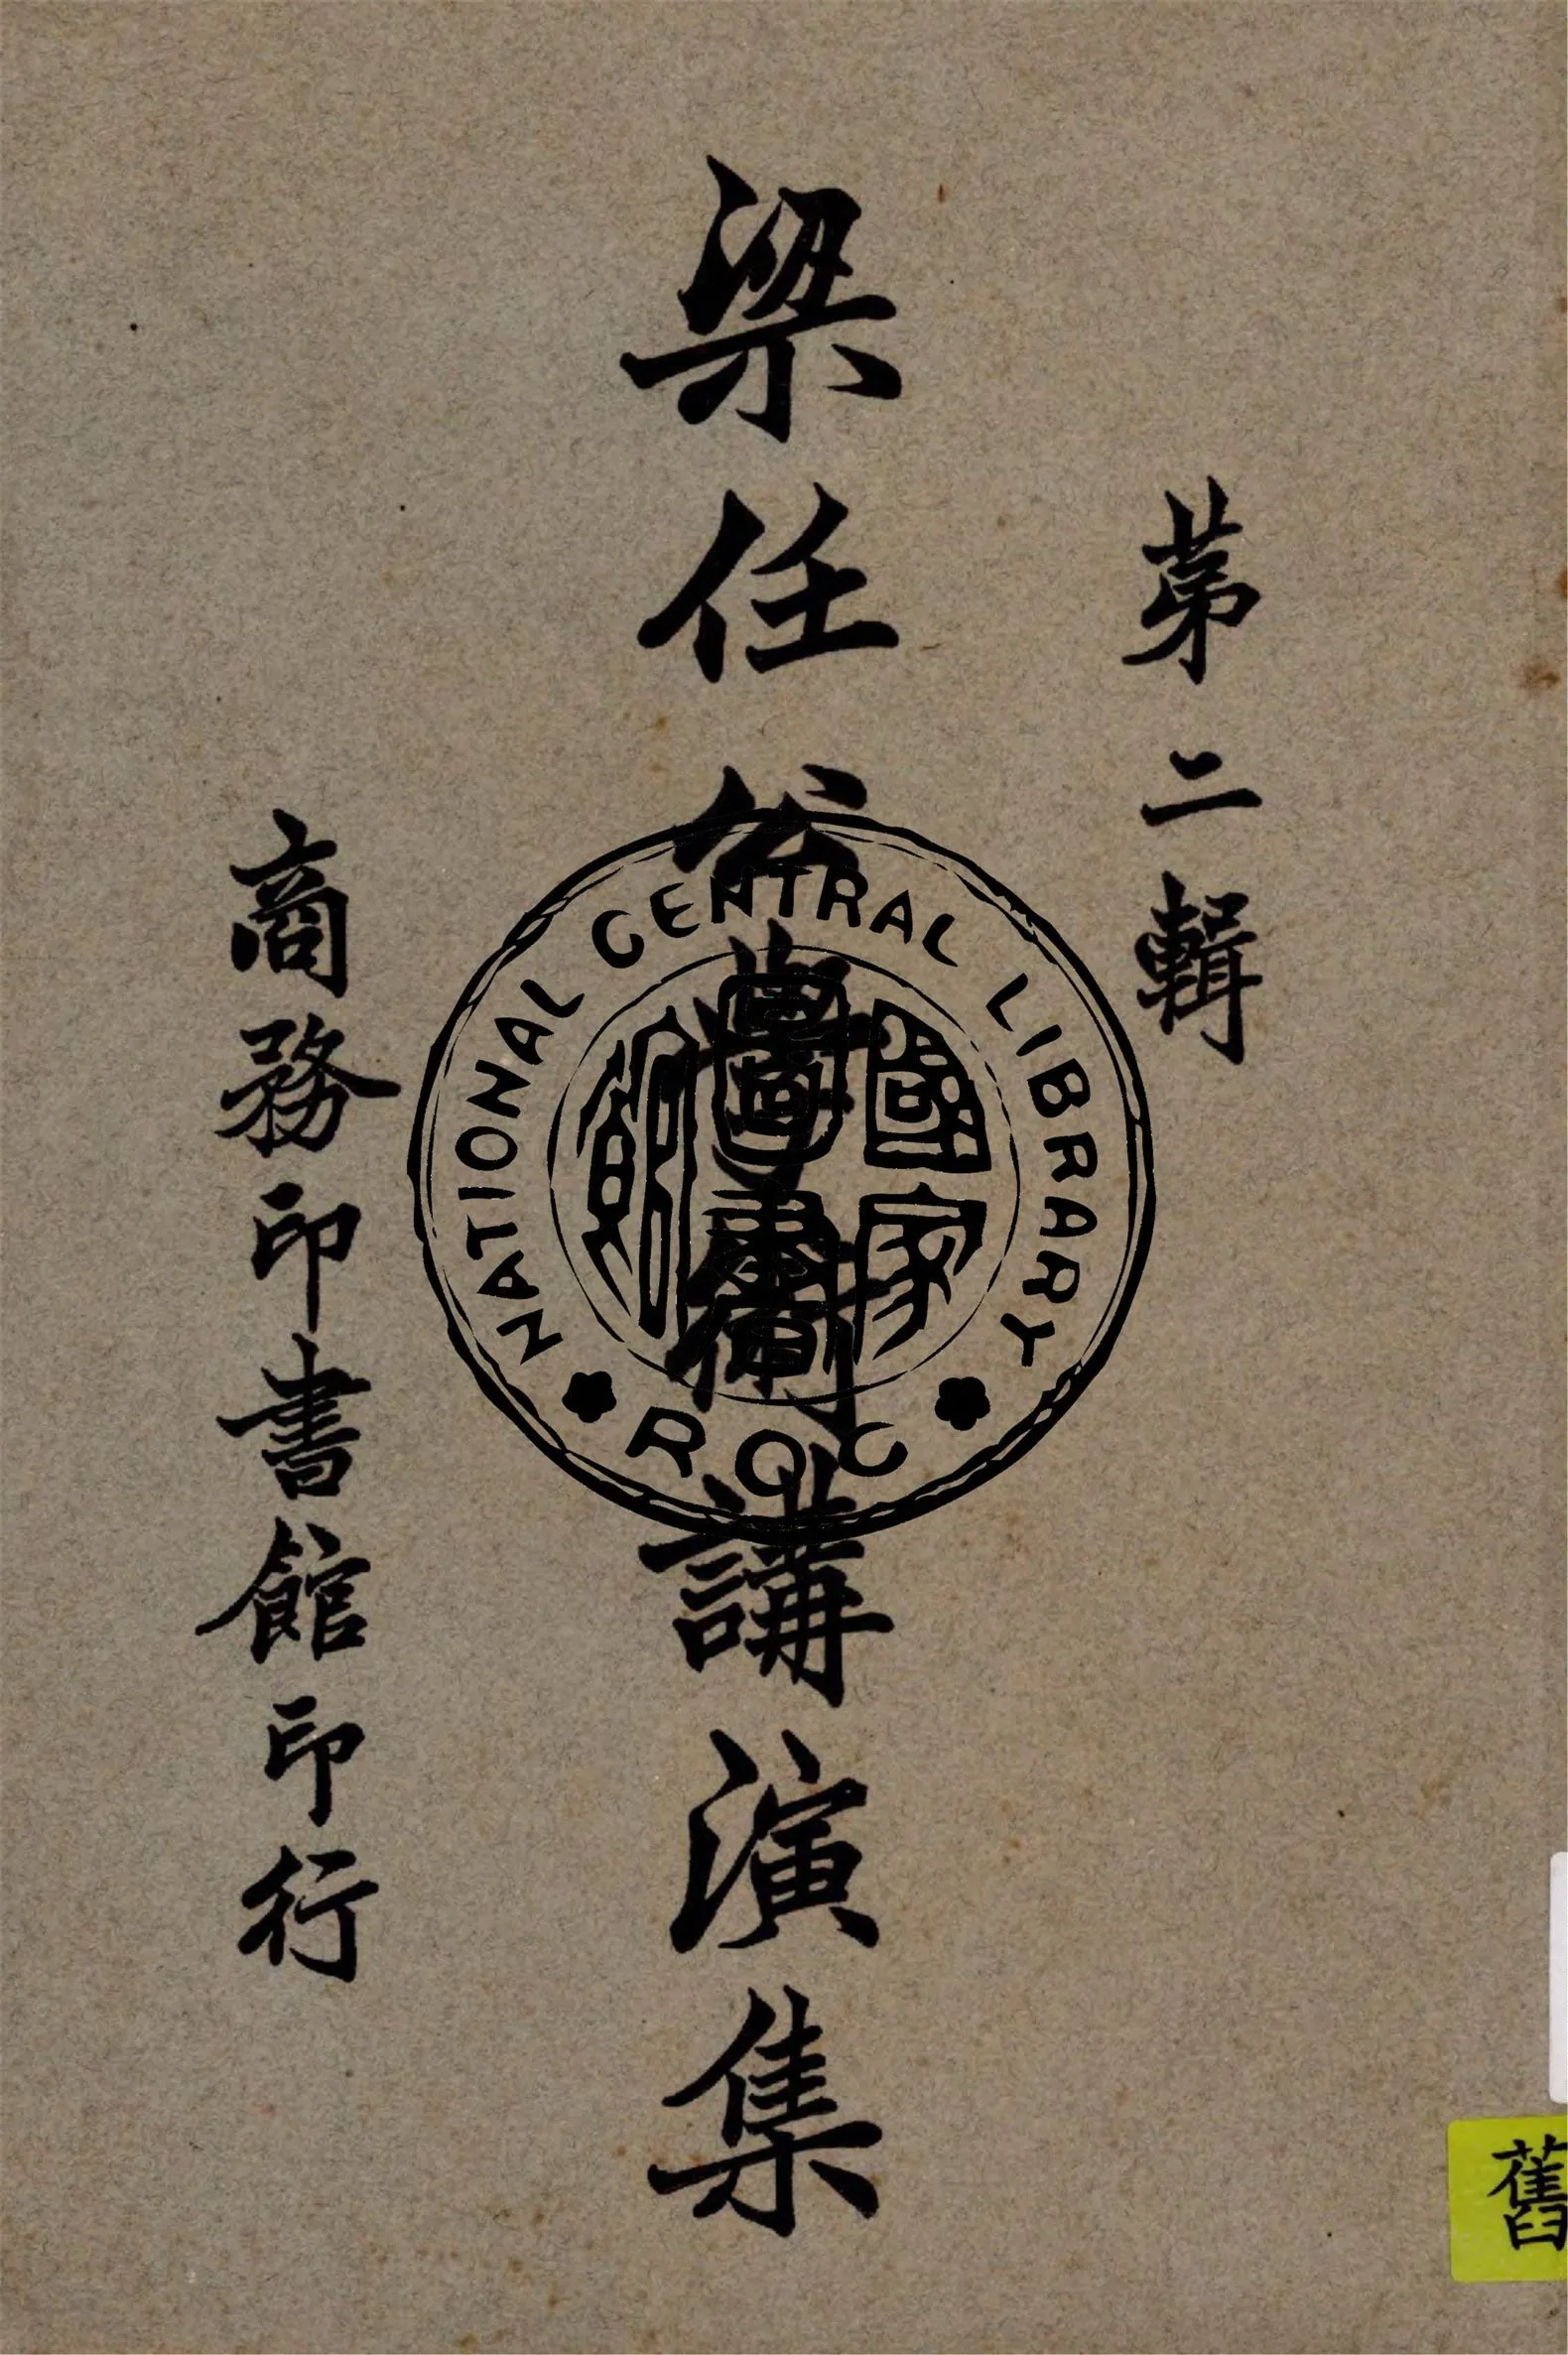 第二輯
梁任公學術講演集
商務印書館印行
NATIONAL CENTRAL LIBRARY
國家圖書館
R O C
舊